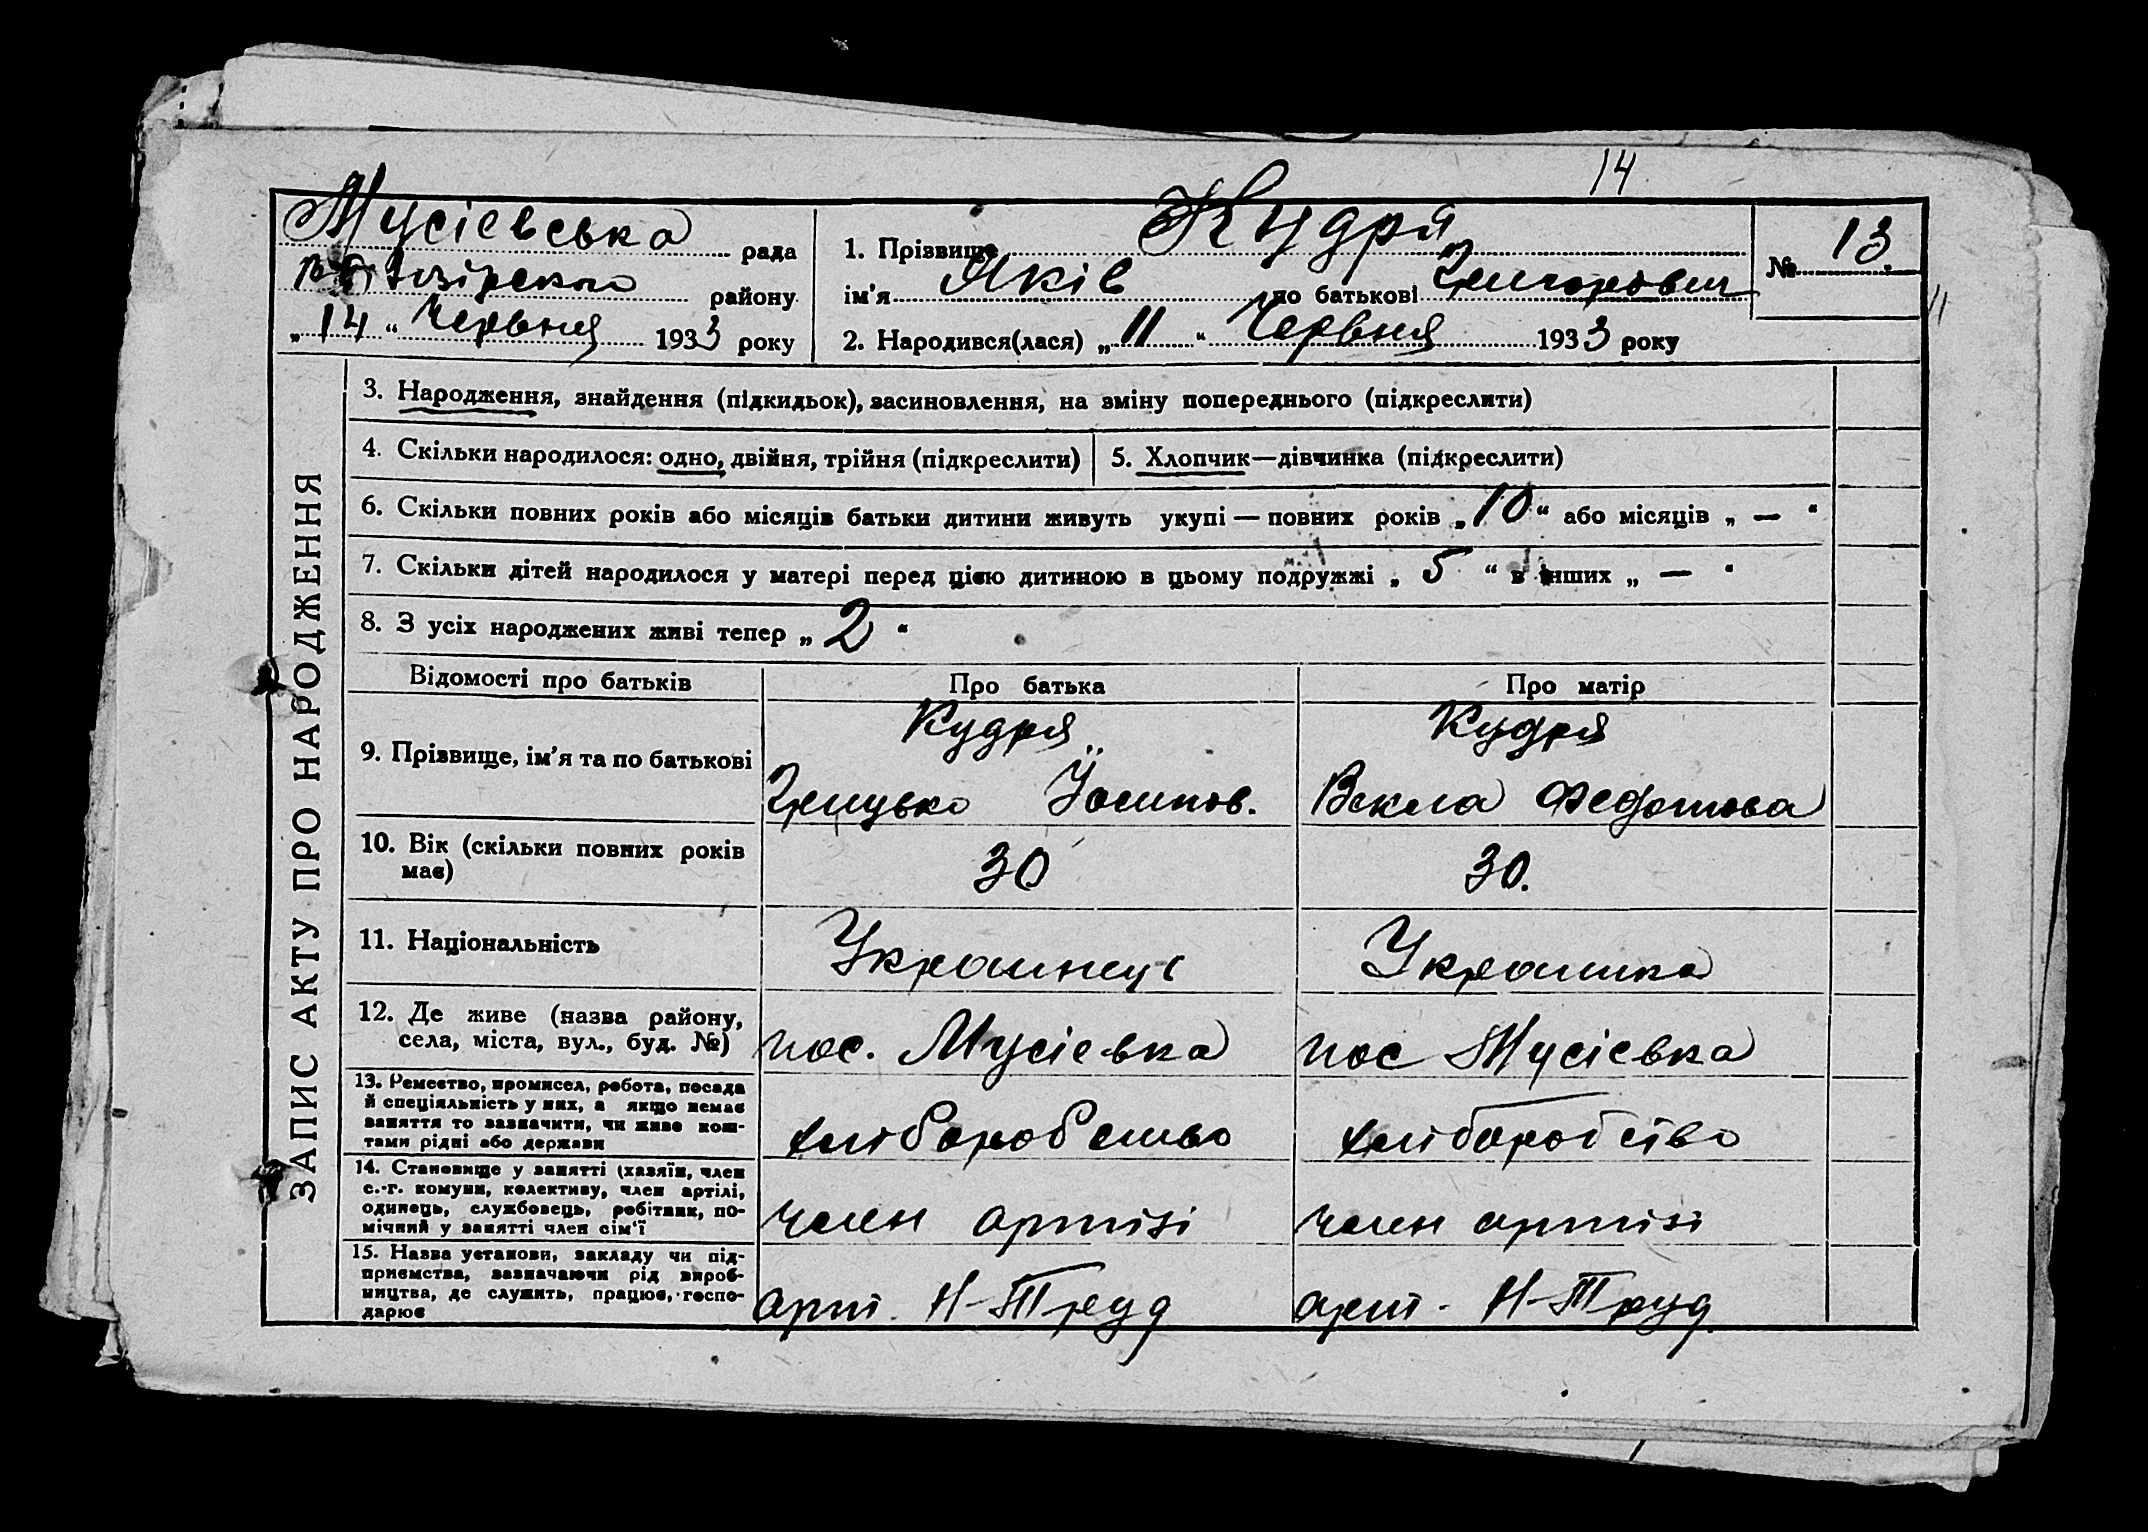 14
Мусієвська рада
району
„ 14 “ Червня 1933 року
1. Прізвище Кудря
ім'я Яків по батькові Григорович
2. Народився(лася) „ 11 “ Червня 1933 року
№ 13.
11
ЗАПИС АКТУ ПРО НАРОДЖЕННЯ
3. Народження, знайдення (підкидьок), засиновлення, на зміну попереднього (підкреслити)
4. Скільки народилося: одно, двійня, трійня (підкреслити)
5. Хлопчик—дівчинка (підкреслити)
6. Скільки повних років або місяців батьки дитини живуть укупі — повних років „ 10 “ або місяців „ — “
7. Скільки дітей народилося у матері перед цією дитиною в цьому подружжі „ 5 “ в інших „ — “
8. З усіх народжених живі тепер „ 2 “
Відомості про батьків Про батька Про матір
9. Прізвище, ім'я та по батькові
Кудря
Грицько Йосипов.
Кудря
Векла Федотова
10. Вік (скільки повних років
має)
30
30.
11. Національність
Украинець
Украинка
12. Де живе (назва району,
села, міста, вул., буд. №)
пос. Мусієвка
пос Мусієвка
13. Ремество, промисел, робота, посада
й спеціяльність у них, а якщо немає
заняття то зазначити, чи живе кош-
тами рідні або держави
хліборобство
хліборобство
14. Становище у занятті (хазяїн, член
с.-г. комуни, колективу, член артілі,
одинець, службовець, робітник, по-
мічний у занятті член сім'ї
член артізі
член артізі
15. Назва установи, закладу чи під-
приємства, зазначаючи рід вироб-
ництва, де служить, працює, госпо-
дарює
арт. Н-Труд
арт. Н-Труд